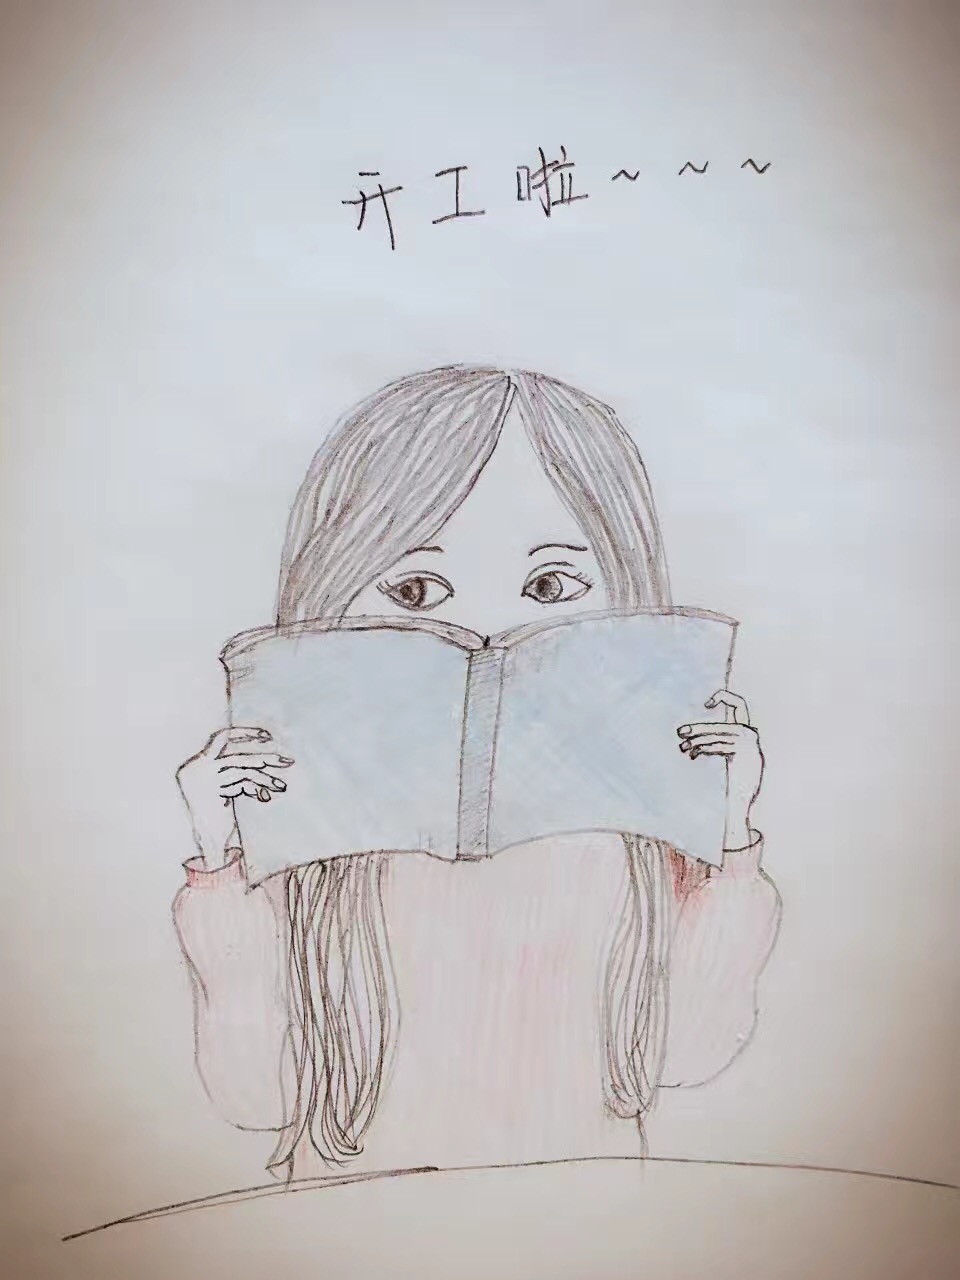 开工啦~~~